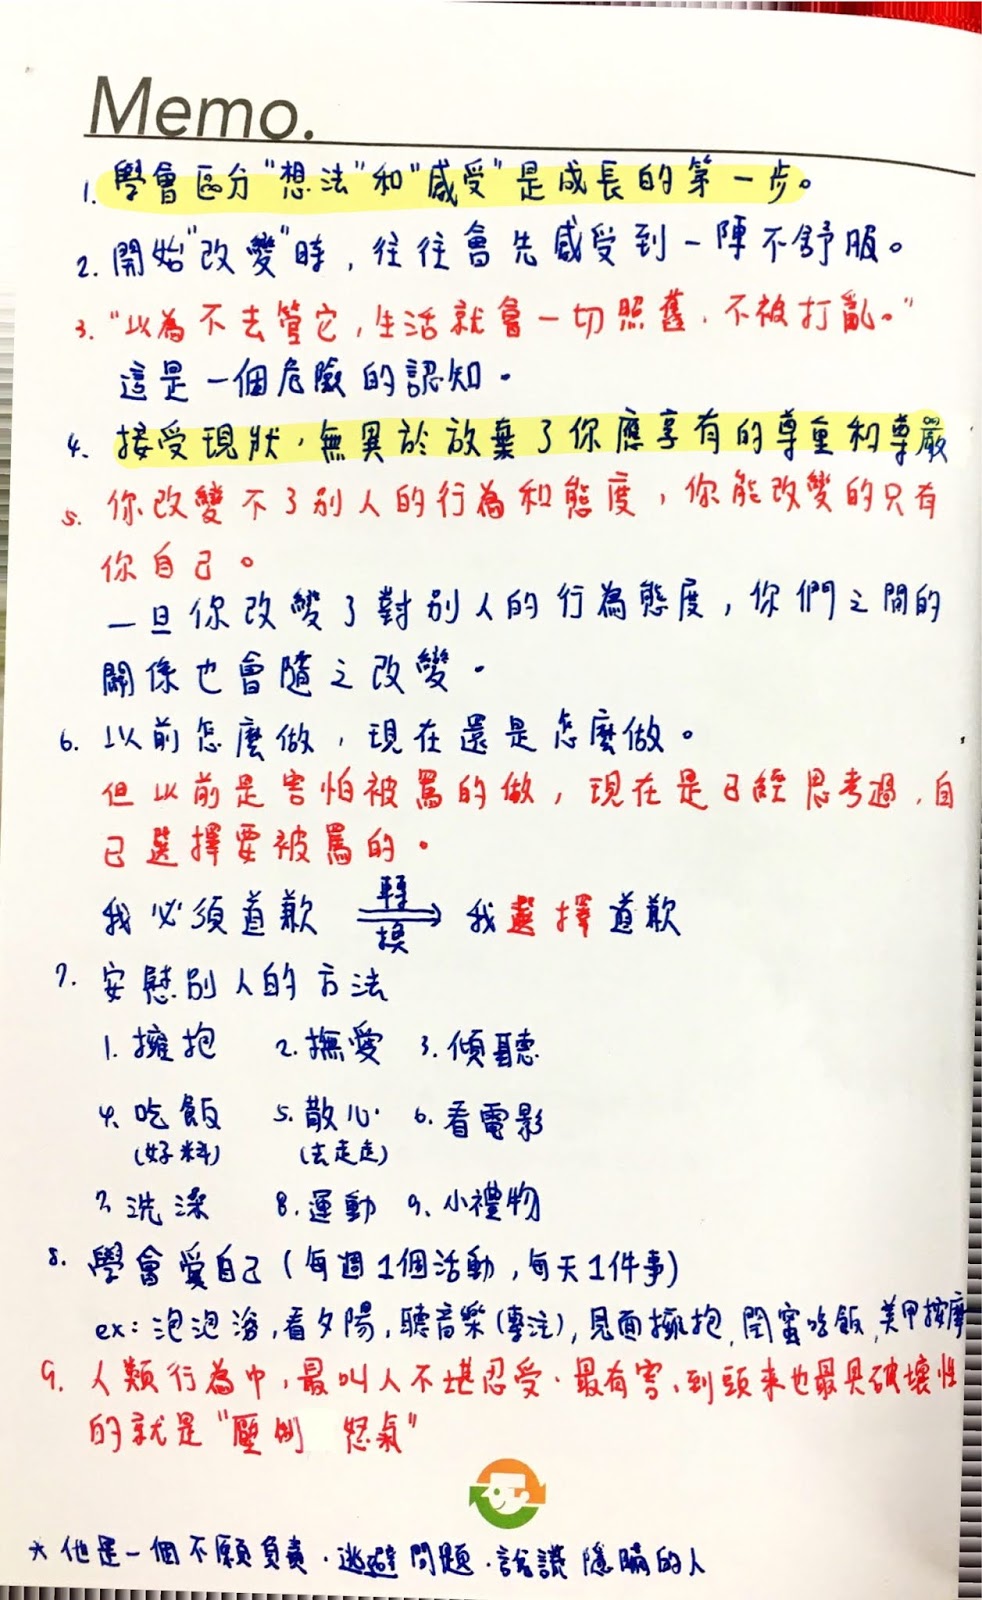 Memo.
1. 學會區分"想法"和"感受"是成長的第一步。
2. 開始"改變"時，往往會先感受到一陣不舒服。
3. "以為不去管它，生活就會一切照舊、不被打亂。"
這是一個危險的認知。
4. 接受現狀，無異於放棄了你應享有的尊重和尊嚴
5. 你改變不了別人的行為和態度，你能改變的只有
你自己。
一旦你改變了對別人的行為態度，你們之間的
關係也會隨之改變。
6. 以前怎麼做，現在還是怎麼做。
但以前是害怕被罵的做，現在是已經思考過、自
己選擇要被罵的。
我必須道歉 轉換 我選擇道歉
7. 安慰別人的方法
1. 擁抱 2. 撫愛 3. 傾聽
4. 吃飯 5. 散心 6. 看電影
(好料) (去走走)
7. 洗澡 8. 運動 9. 小禮物
8. 學會愛自己 (每週1個活動，每天1件事)
ex: 泡泡浴, 看夕陽, 聽音樂(專注), 見面擁抱, 閨蜜吃飯, 美甲按摩
9. 人類行為中，最叫人不堪忍受、最有害、到頭來也最具破壞性
的就是"壓倒 怒氣"
* 他是一個不願負責、逃避問題、說謊隱瞞的人